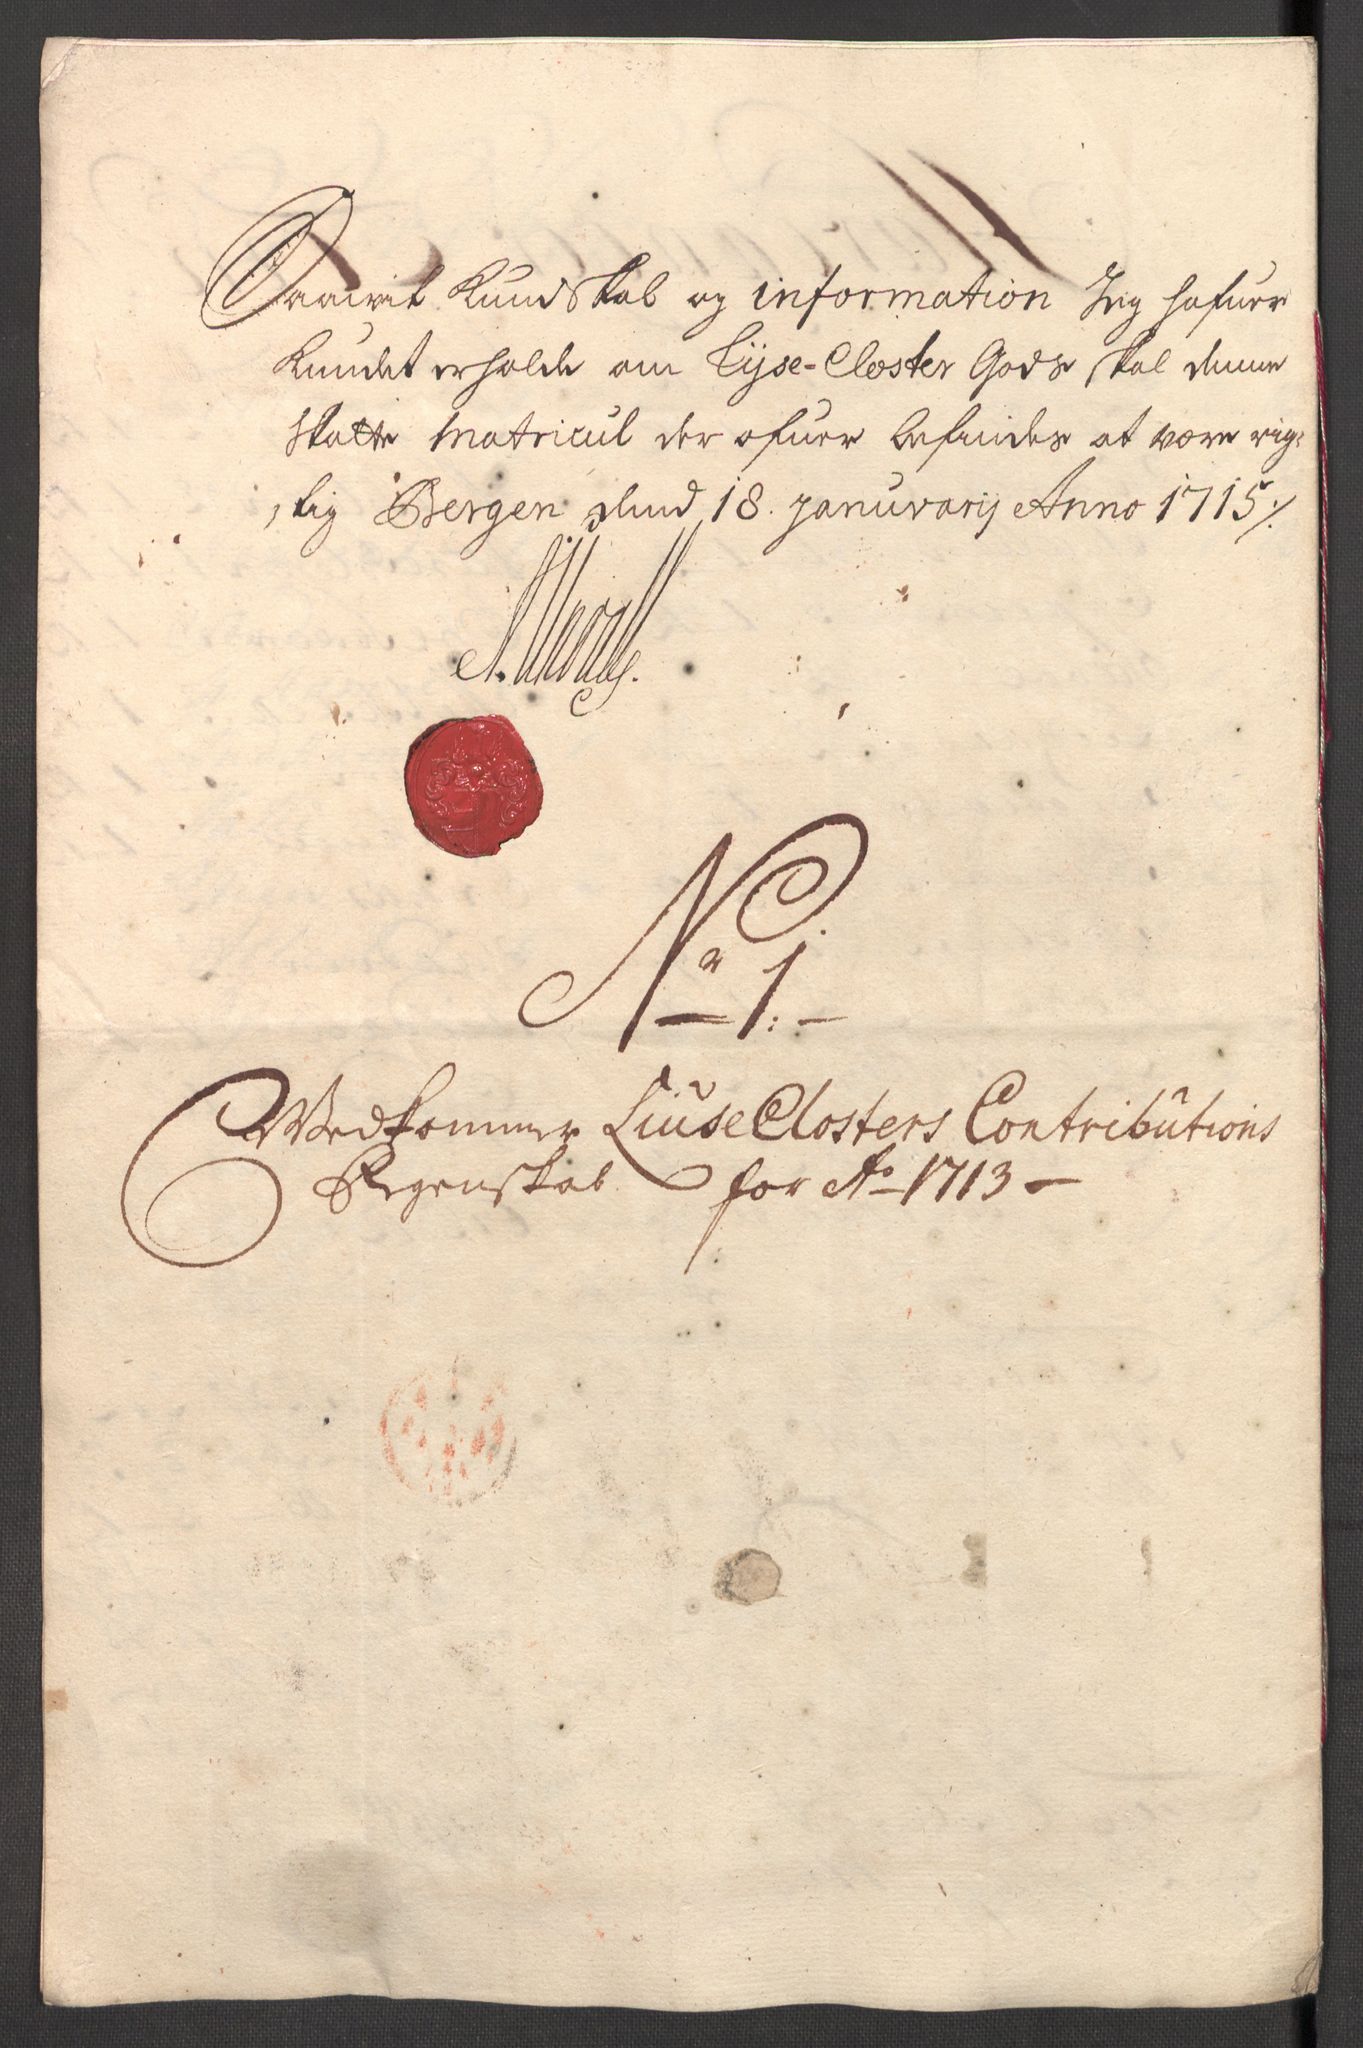 Saavit Kundskab og information Jeg hafuer
Kundet erholde om Lyse-Closter Gods skal denne
skatte Matricul der ofuer befindes at være rig-
tig Bergen dend 18. Januvarij Anno 1715 ./.
No 1.
Vedkommer Liuse Closters Contributions
Regenskab for Ao 1713